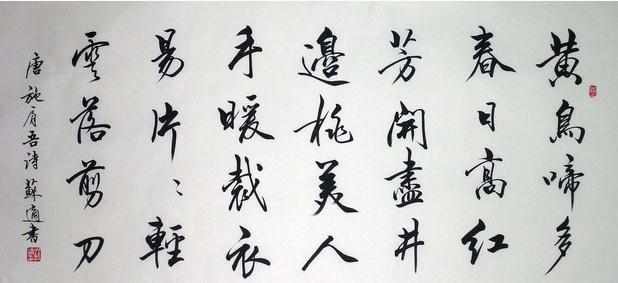 黄鳥啼多
春日高紅
芳開盡井
邊桃美人
手暖裁衣
易片〻輕
雲落剪刀
唐施肩吾诗蘇適書